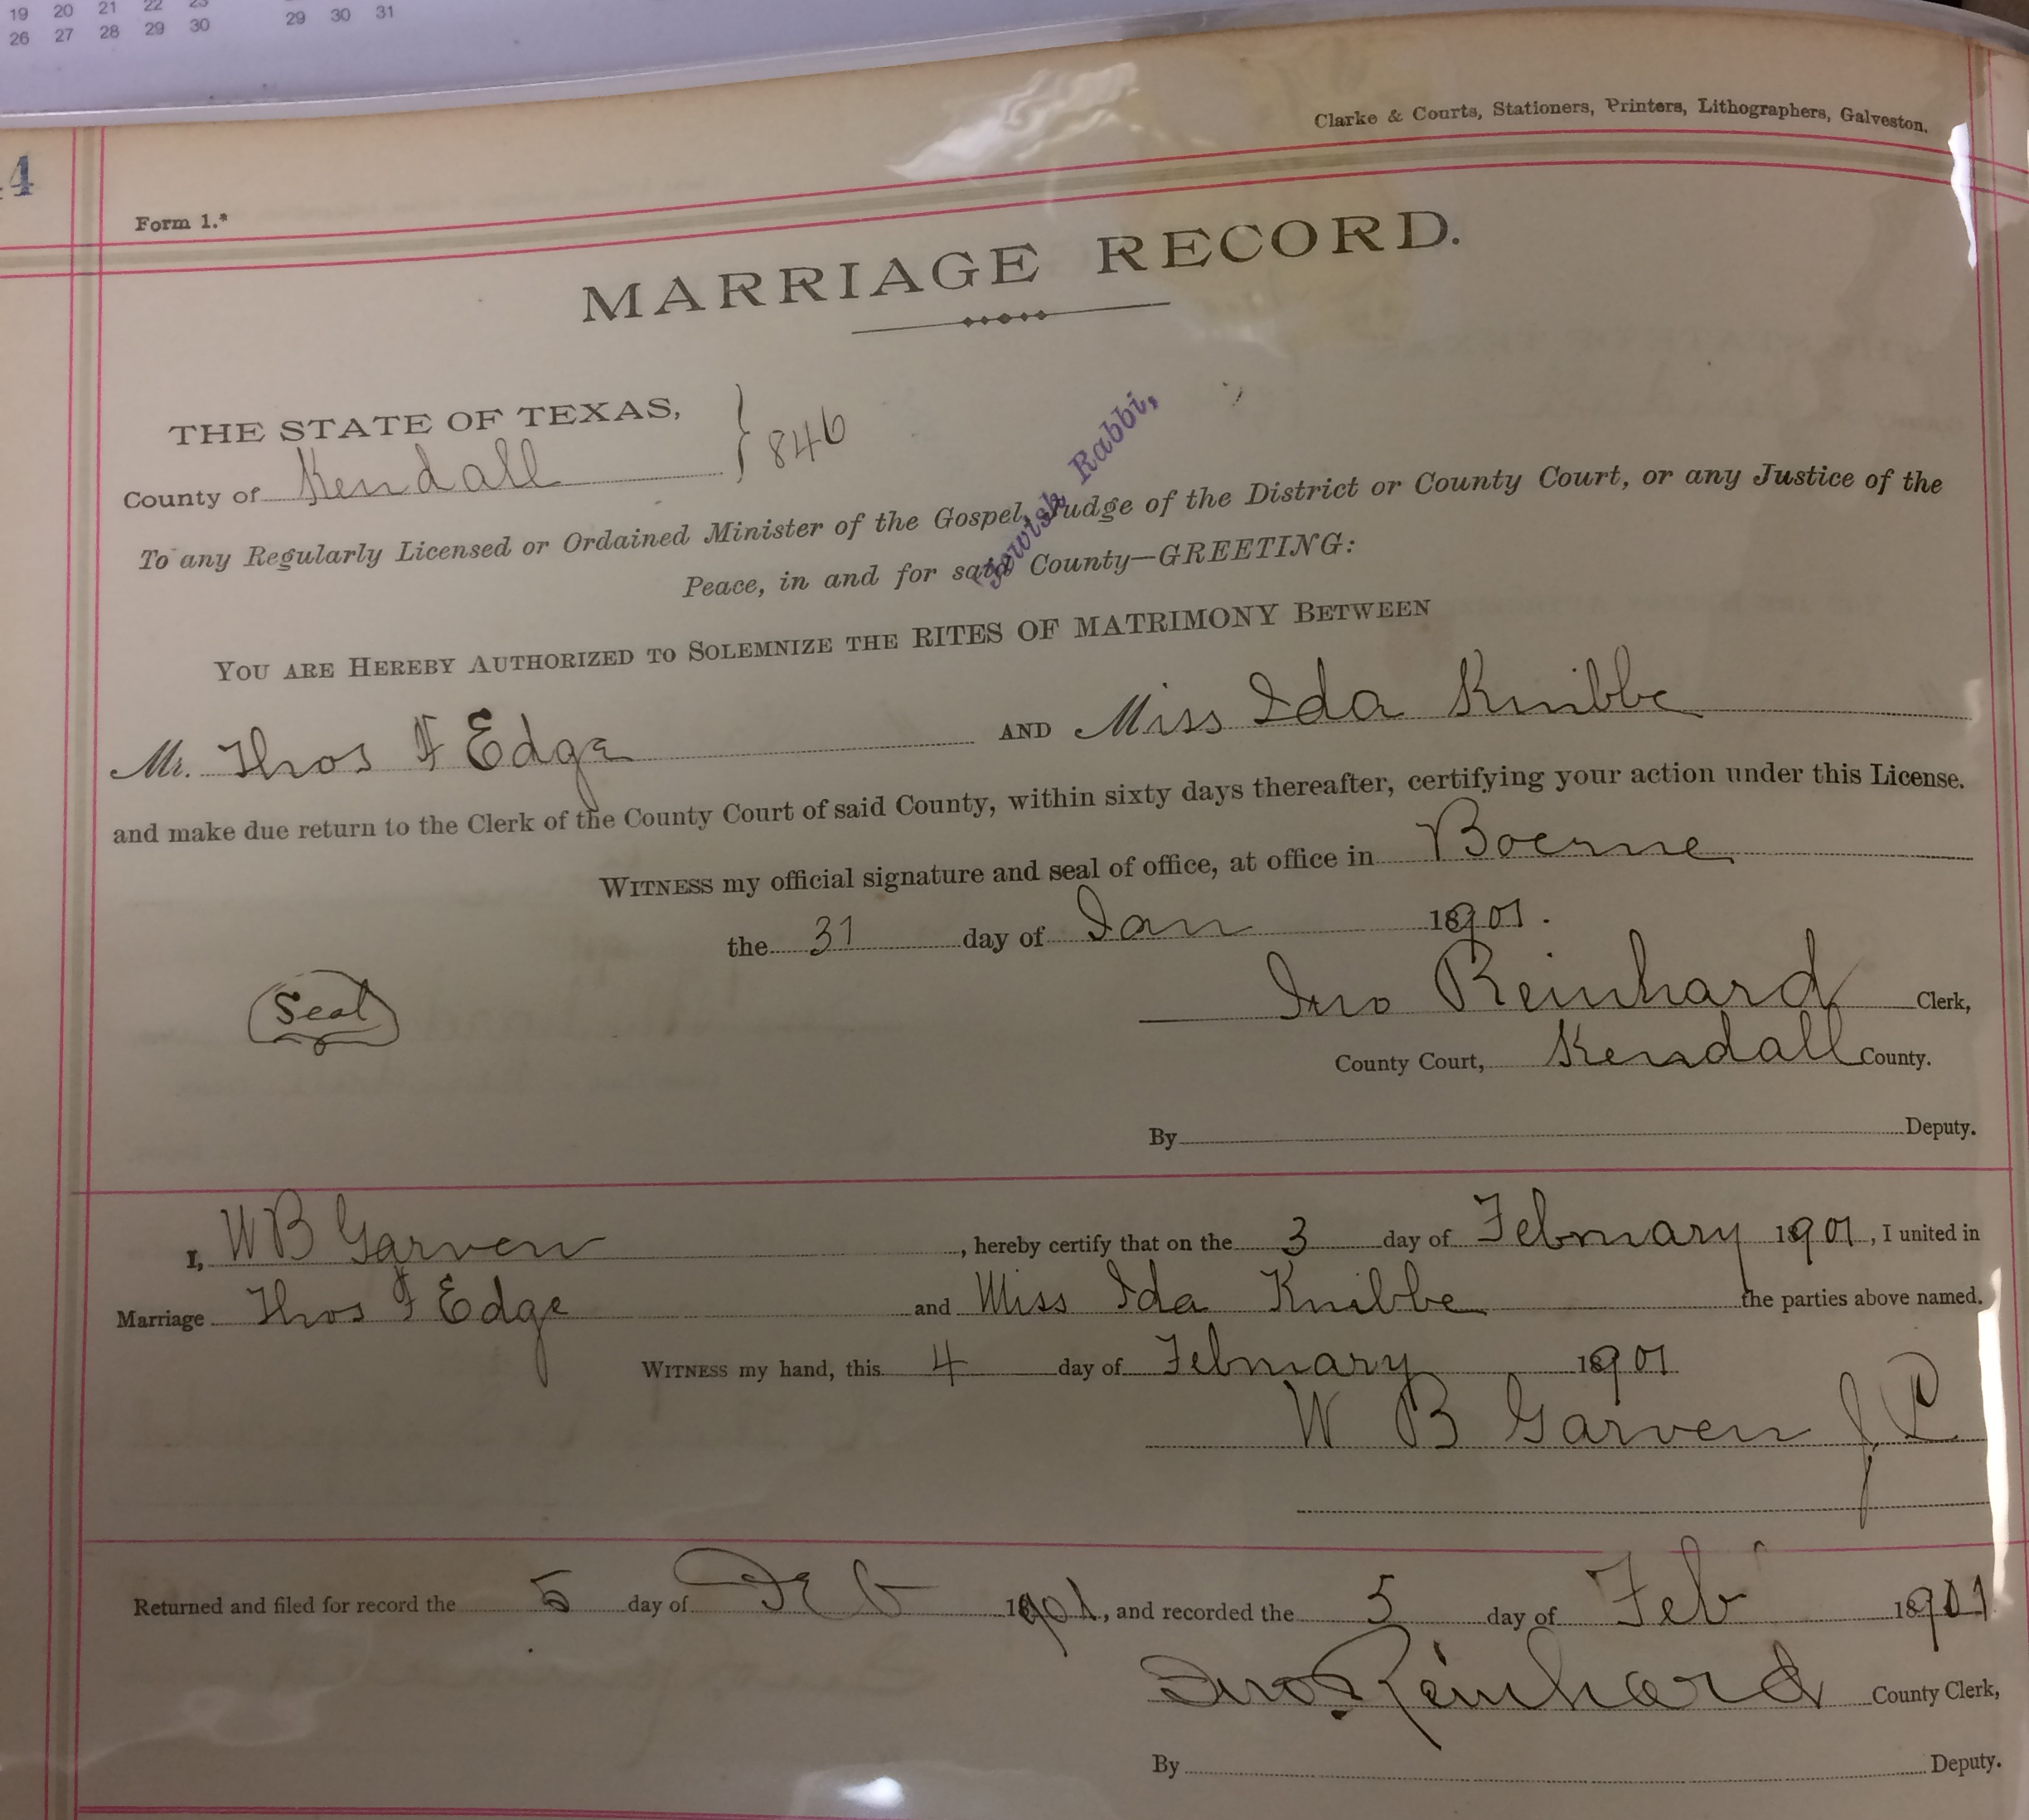 19 20 21 22 23
26 27 28 29 30
29 30 31
Clarke & Courts, Stationers, Printers, Lithographers, Galveston.
4
Form 1.*
MARRIAGE RECORD.
THE STATE OF TEXAS,
County of Kendall } 846
Jewish Rabbi,
To any Regularly Licensed or Ordained Minister of the Gospel, Judge of the District or County Court, or any Justice of the
Peace, in and for said County—GREETING:
YOU ARE HEREBY AUTHORIZED TO SOLEMNIZE THE RITES OF MATRIMONY BETWEEN
Mr. Thos F Edge AND Miss Ida Knibbe
and make due return to the Clerk of the County Court of said County, within sixty days thereafter, certifying your action under this License.
WITNESS my official signature and seal of office, at office in Boerne
the 31 day of Jan 1901.
Seal
Jno Reinhard Clerk,
County Court, Kendall County.
By Deputy.
I, W B Garven, hereby certify that on the 3 day of February 1901, I united in
Marriage Thos F Edge and Miss Ida Knibbe the parties above named.
WITNESS my hand, this 4 day of February 1901
W B Garven J. P
Returned and filed for record the 5 day of Feb 1901, and recorded the 5 day of Feb 1901
Jno Reinhard County Clerk,
By Deputy.